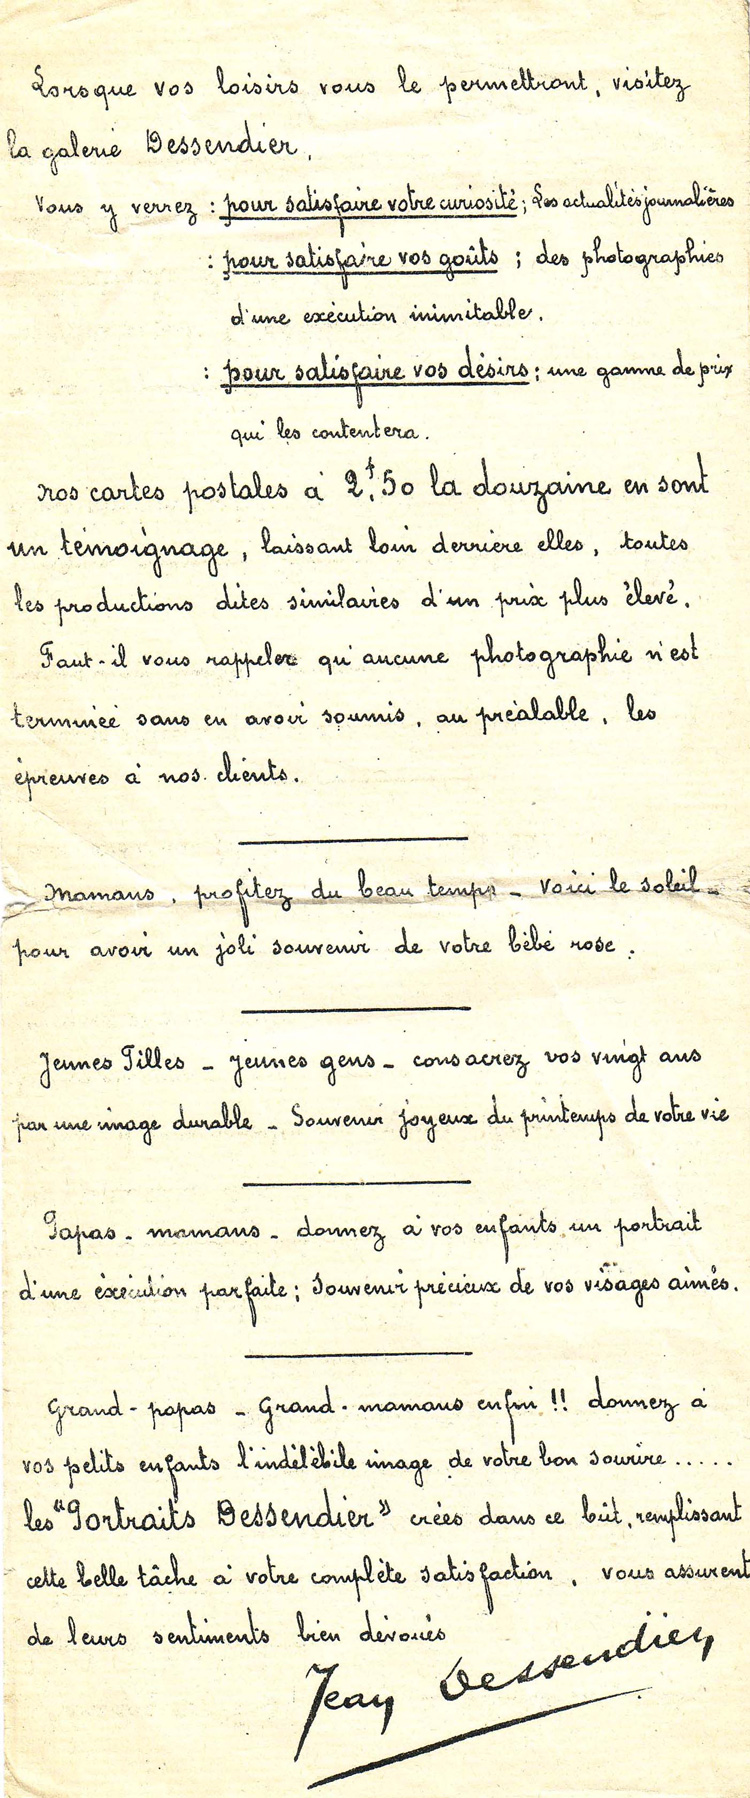 Lorsque vos loisirs vous le permettront, visitez
la galerie Dessendier.
Vous y verrez : pour satisfaire votre curiosité ; Les actualités journalières
: pour satisfaire vos goûts ; des photographies
d'une exécution inimitable.
: pour satisfaire vos désirs ; une gamme de prix
qui les contentera.
Nos cartes postales à 2f.50 la douzaine en sont
un témoignage, laissant loin derrière elles, toutes
les productions dites similaires d'un prix plus élevé.
Faut-il vous rappeler qu'aucune photographie n'est
terminée sans en avoir soumis, au préalable, les
épreuves à nos clients.
Mamans, profitez du beau temps - Voici le soleil -
pour avoir un joli souvenir de votre bébé rose.
Jeunes Filles - jeunes gens - consacrez vos vingt ans
par une image durable - Souvenir joyeux du printemps de votre vie
Papas - mamans - donnez à vos enfants un portrait
d'une éxécution parfaite ; Souvenir précieux de vos visages aimés.
Grand-papas - Grand-mamans enfin !! donnez à
vos petits enfants l'indélébile image de votre bon sourire .....
les "Portraits Dessendier" créés dans ce bût, remplissant
cette belle tâche à votre complète satisfaction, vous assurent
de leurs sentiments bien dévoués
Jean Dessendier